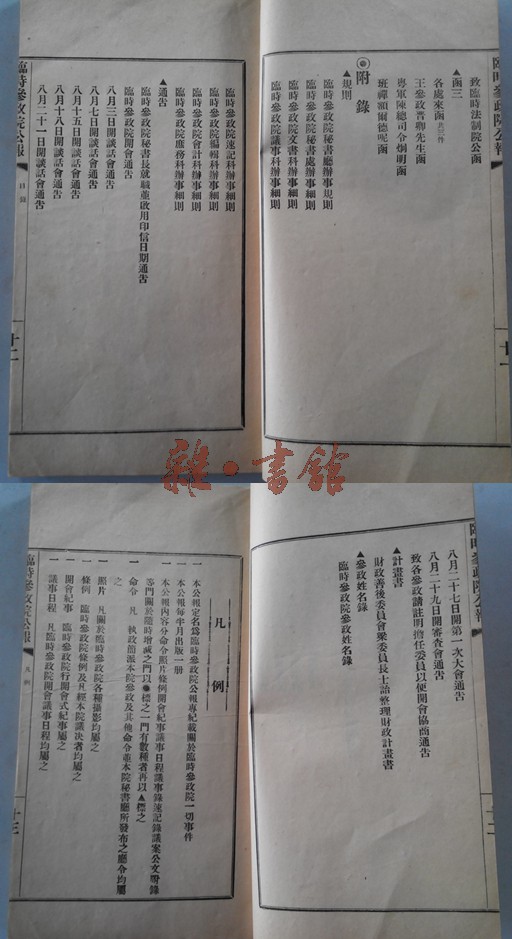 臨時參政院公報
致臨時法制院公函
▲函三
各處來函 共三件
王參政晉卿先生函
粵軍陳總司令炯明函
班禪額爾德呢函
◉附錄
▲規則
臨時參政院秘書廳辦事規則
臨時參政院秘書處辦事細則
臨時參政院文書科辦事細則
臨時參政院議事科辦事細則
臨時參政院速記科辦事細則
臨時參政院編輯科辦事細則
臨時參政院會計科辦事細則
臨時參政院庶務科辦事細則
▲通告
臨時參政院秘書長就職並啟用印信日期通告
臨時參政院開會通告
八月三日開談話會通告
八月七日開談話會通告
八月十五日開談話會通告
八月十八日開談話會通告
八月二十一日開談話會通告
臨時參政院公報
目錄
十二
雜·書館
臨時參政院公報
八月二十七日開第一次大會通告
八月二十九日開審查會通告
致各參政請註明擔任委員以便開會協商通告
▲計畫書
財政善後委員會梁委員長士詒整理財政計畫書
▲參政姓名錄
臨時參政院參政姓名錄
凡例
一 本公報定名爲臨時參政院公報專紀載關於臨時參政院一切事件
一 本公報每半月出版一册
一 本公報內容分命令照片條例開會紀事議事日程議事錄速記錄議案公文附錄
等門關於隨時增減之門以●標之一門有數種者再以▲標之
一 命令 凡 執政簡派本院參政及其他命令並本院秘書廳所發布之廳令均屬
之
一 照片 凡關於臨時參政院各種攝影均屬之
一 條例 臨時參政院條例及凡經本院議決者均屬之
一 開會紀事 臨時參政院行開會式紀事屬之
一 議事日程 凡臨時參政院開會議事日程均屬之
臨時參政院公報
凡例
十三